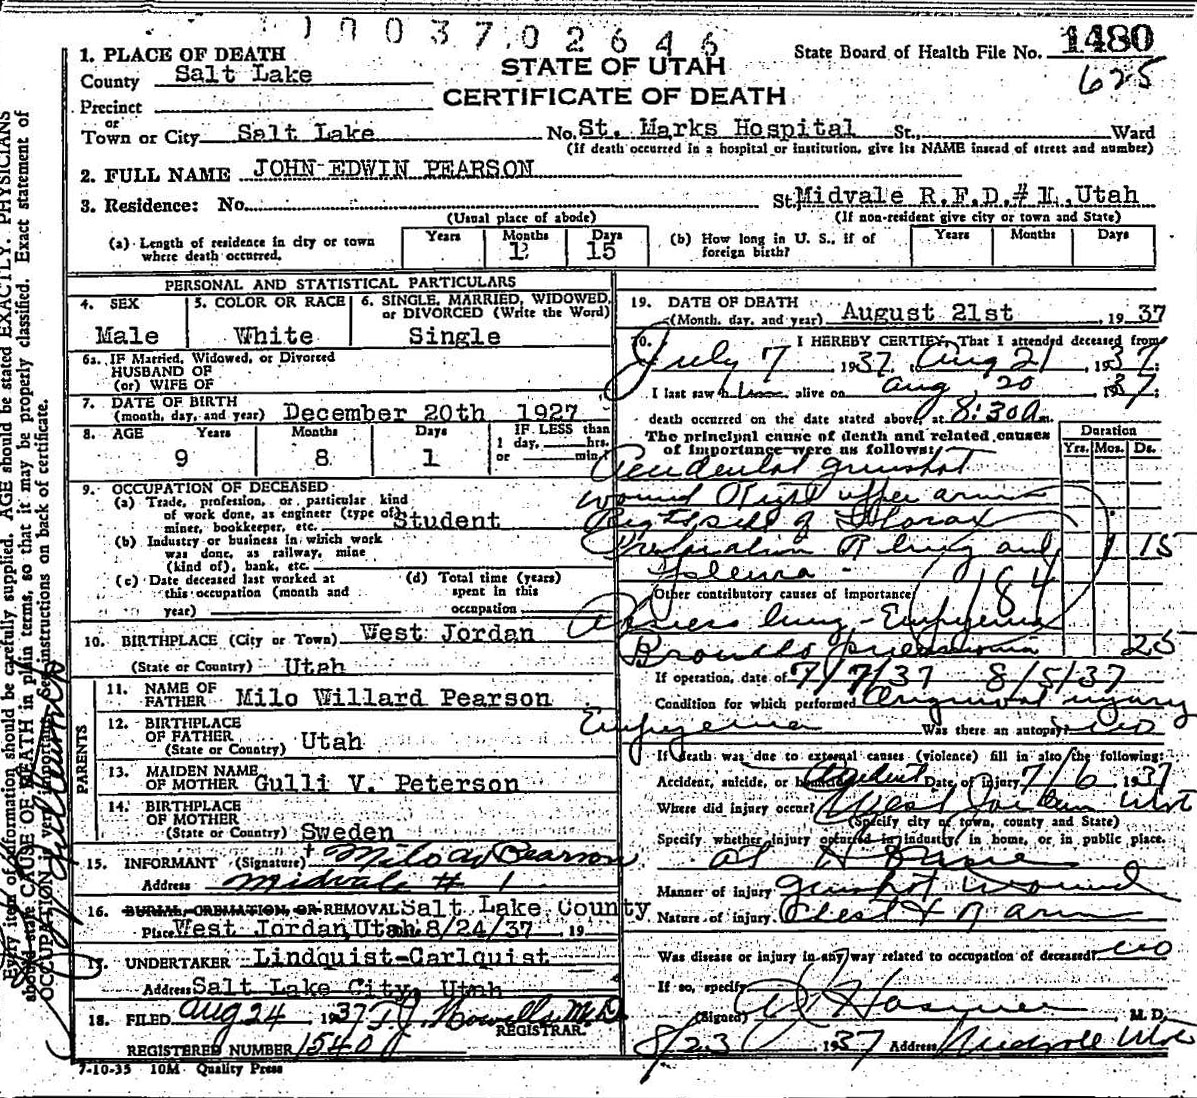 1003702646
1. PLACE OF DEATH
State Board of Health File No. 1480
County Salt Lake
STATE OF UTAH
625
Precinct
CERTIFICATE OF DEATH
or
Town or City Salt Lake No. St. Marks Hospital St., Ward
(If death occurred in a hospital or institution, give its NAME instead of street and number)
2. FULL NAME JOHN EDWIN PEARSON
3. Residence: No. St. Midvale R.F.D.# 1, Utah
(Usual place of abode) (If non-resident give city or town and State)
(a) Length of residence in city or town where death occurred. Years Months 1 Days 15
(b) How long in U. S., if of foreign birth? Years Months Days
PERSONAL AND STATISTICAL PARTICULARS
4. SEX Male
5. COLOR OR RACE White
6. SINGLE, MARRIED, WIDOWED, or DIVORCED (Write the Word) Single
6a. IF Married, Widowed, or Divorced
HUSBAND OF
(or) WIFE OF
7. DATE OF BIRTH
(month, day, and year) December 20th 1927
8. AGE Years 9 Months 8 Days 1
IF LESS than
1 day, hrs.
or min.
9. OCCUPATION OF DECEASED
(a) Trade, profession, or particular kind
of work done, as engineer (type of)
miner, bookkeeper, etc. Student
(b) Industry or business in which work
was done, as railway, mine
(kind of), bank, etc.
(c) Date deceased last worked at
this occupation (month and
year)
(d) Total time (years)
spent in this
occupation
10. BIRTHPLACE (City or Town) West Jordan
(State or Country) Utah
PARENTS
11. NAME OF
FATHER Milo Willard Pearson
12. BIRTHPLACE
OF FATHER
(State or Country) Utah
13. MAIDEN NAME
OF MOTHER Gulli V. Peterson
14. BIRTHPLACE
OF MOTHER
(State or Country) Sweden
15. INFORMANT (Signature) Milo W Pearson
Address Midvale # 1
16. BURIAL, CREMATION, OR REMOVAL Salt Lake County
Place West Jordan, Utah 8/24/37, 19
17. UNDERTAKER Lindquist-Carlquist
Address Salt Lake City, Utah
18. FILED Aug 24 1937 T.J. Howells M.D.
REGISTRAR.
REGISTERED NUMBER 1540
7-10-35 10M Quality Press
19. DATE OF DEATH
(Month, day, and year) August 21st, 1937
20. I HEREBY CERTIFY, That I attended deceased from
July 7 1937, to Aug 21, 1937;
I last saw him alive on Aug 20 1937;
death occurred on the date stated above, at 8:30 a m.
The principal cause of death and related causes
of importance were as follows:
Duration
Yrs. Mos. Ds.
Accidental gunshot
wound Right upper arm
Right side of Thorax
Perforation R lung and 1 15
Pleura -
184
Other contributory causes of importance:
Abscess lung - Empyema
Broncho pneumonia 25
If operation, date of 7/7/37 8/5/37
Condition for which performed Original injury
Empyema Was there an autopsy? No
If death was due to external causes (violence) fill in also the following:
Accident, suicide, or homicide Accident Date of injury 7/6 1937
Where did injury occur? West Jordan Utah
(Specify city or town, county and State)
Specify whether injury occurred in industry, in home, or in public place.
at Home
Manner of injury gunshot wound
Nature of injury Chest & R arm
Was disease or injury in any way related to occupation of deceased? No
If so, specify
(Signed) M. D.
8/23, 1937 Address Midvale Utah
Every item of information should be carefully supplied. AGE should be stated EXACTLY. PHYSICIANS
should state CAUSE OF DEATH in plain terms, so that it may be properly classified. Exact statement of
OCCUPATION is very important. See instructions on back of certificate.